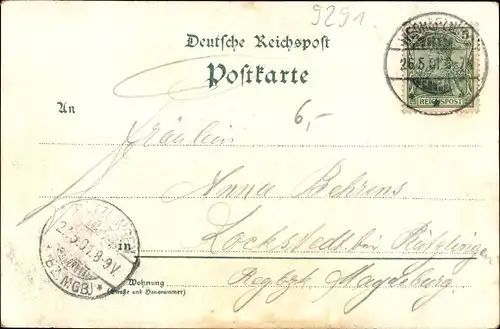 9291
Deutsche Reichspost
Postkarte
26.5.01
REICHSPOST
An
6,-
Fräulein
Anna Behrens
in Lockstedt bei Rätzlingen
Regbzk. Magdeburg.
(BZ. MGB.)
Wohnung
(Straße und Hausnummer)